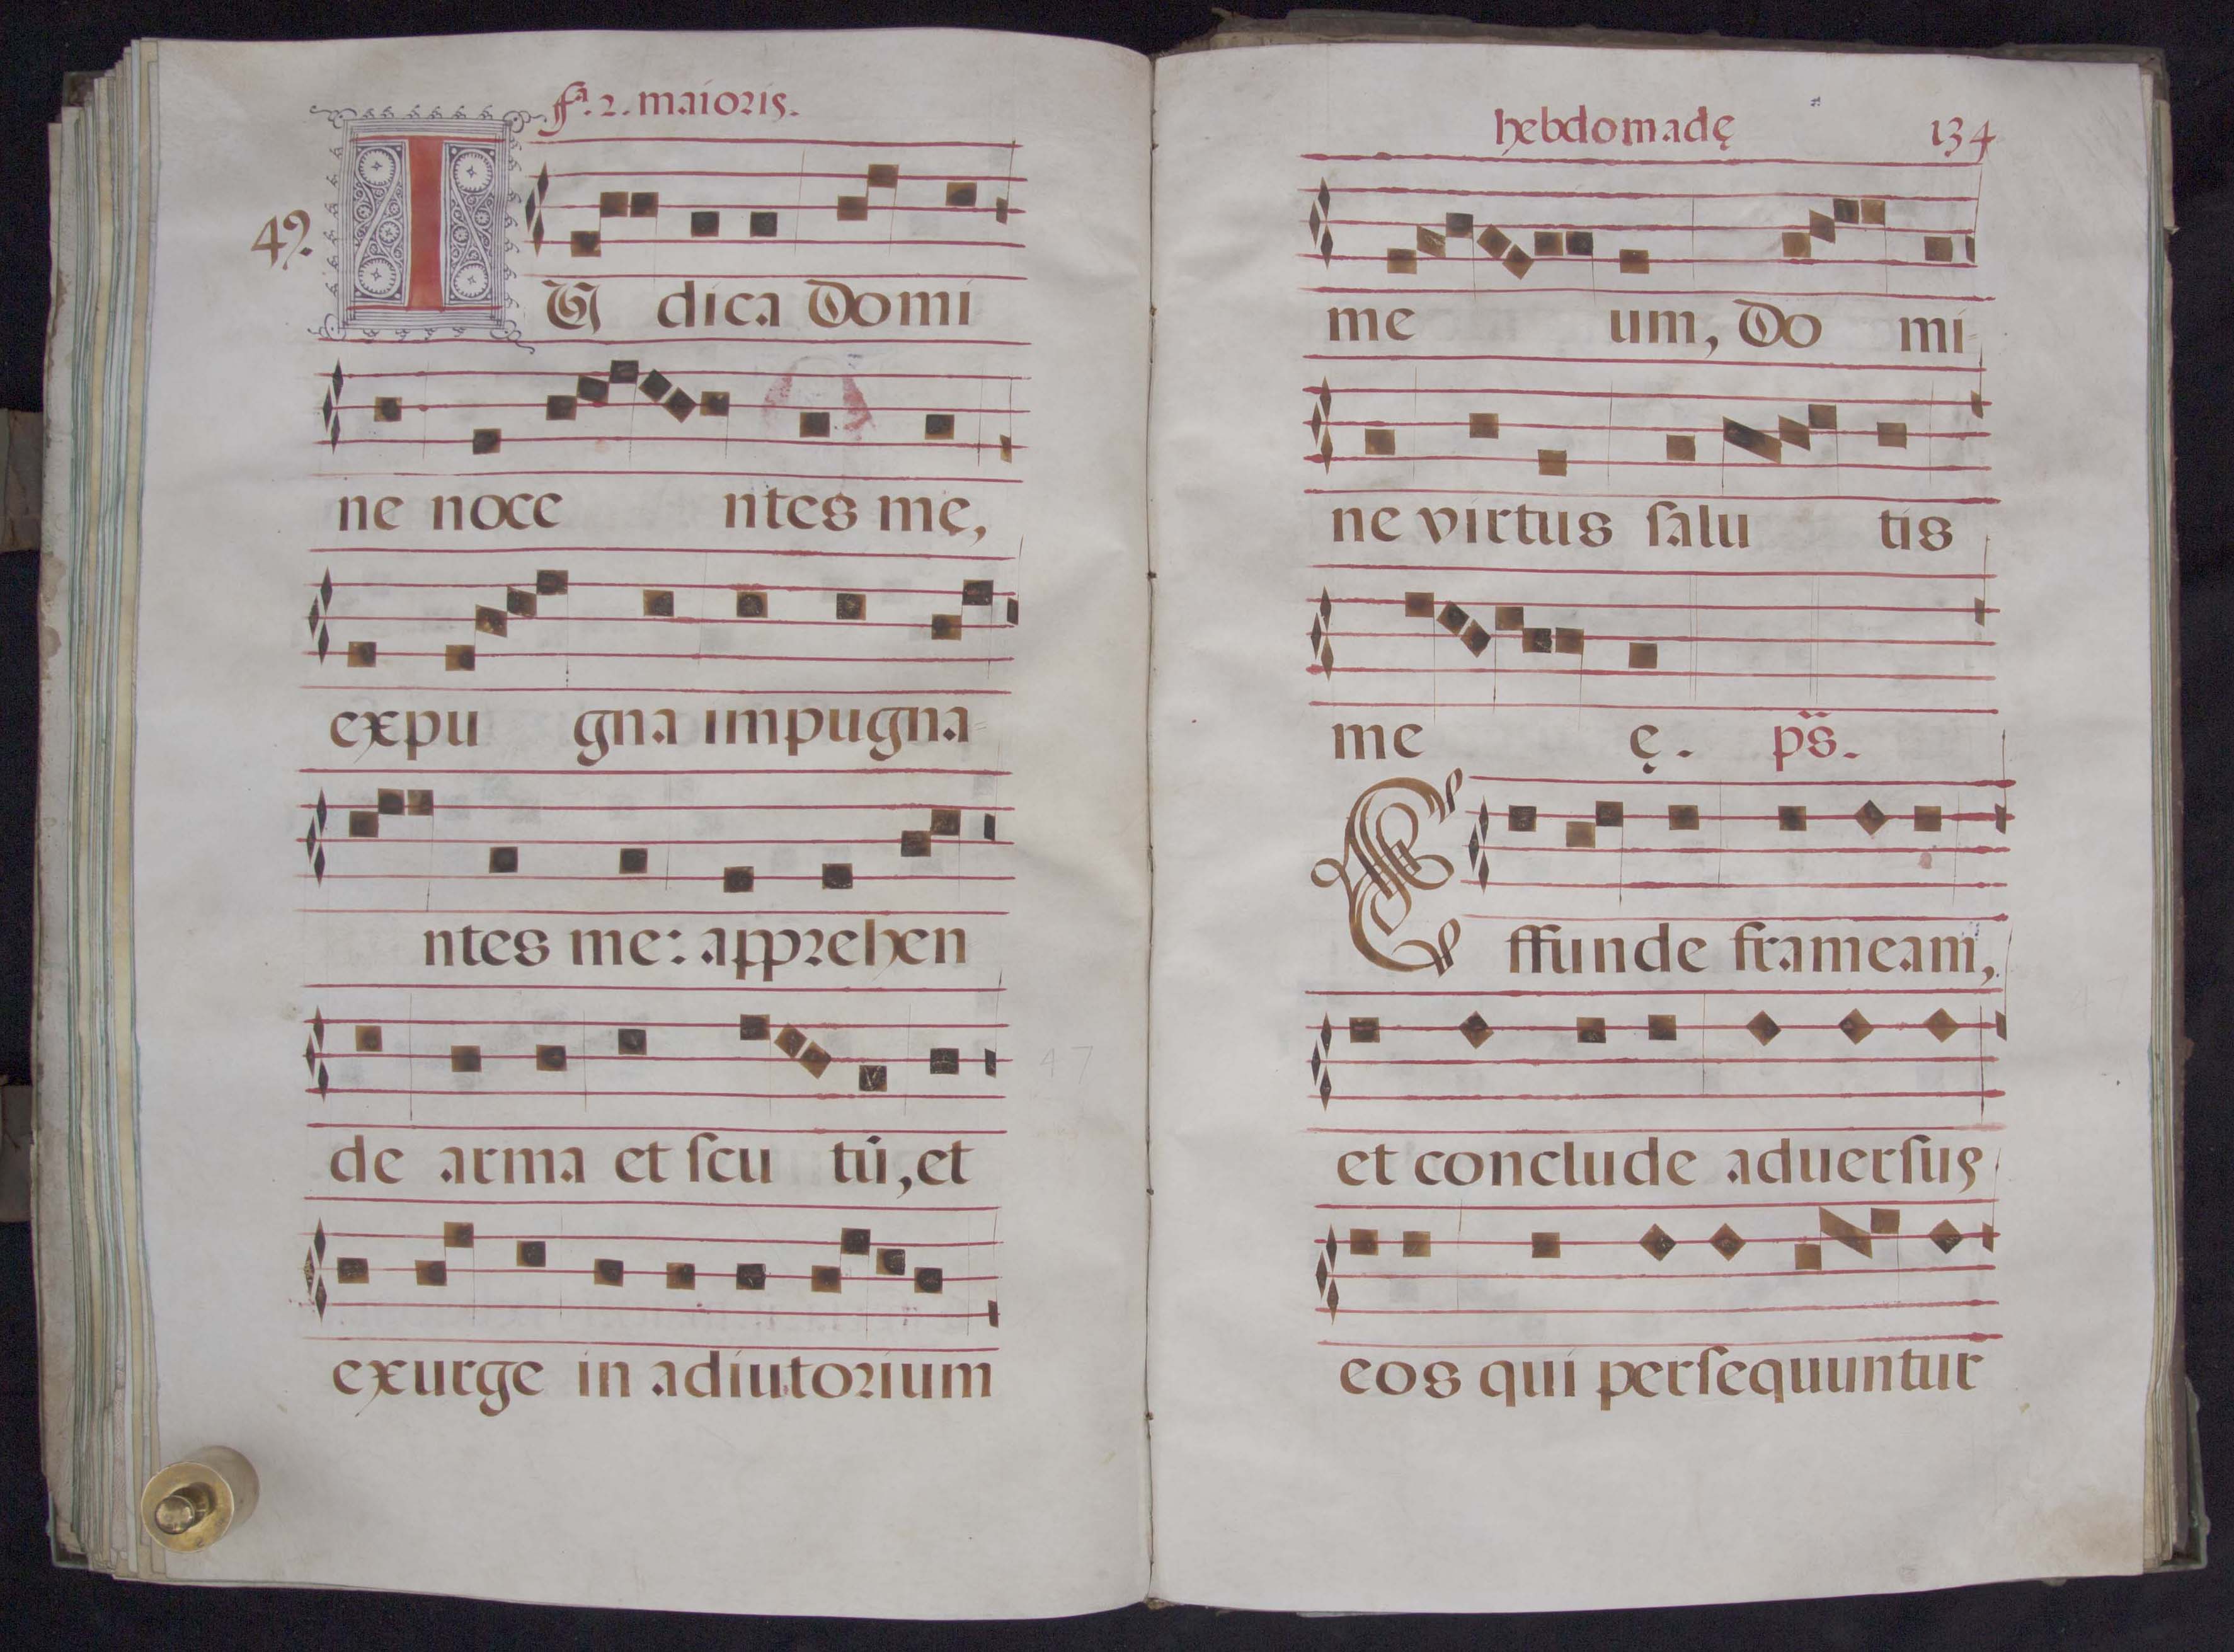 fª. 2. maioris.
4?.
IU dica Domi
ne noce ntes me,
expu gna impugna-
ntes me: apprehen
de arma et ſcu tū, et
47
exurge in adiutorium
hebdomadę 134
me um, Do mi-
ne virtus ſalu tis
me ę. ps.
Effunde frameam,
et conclude aduerſus
eos qui perſequuntur